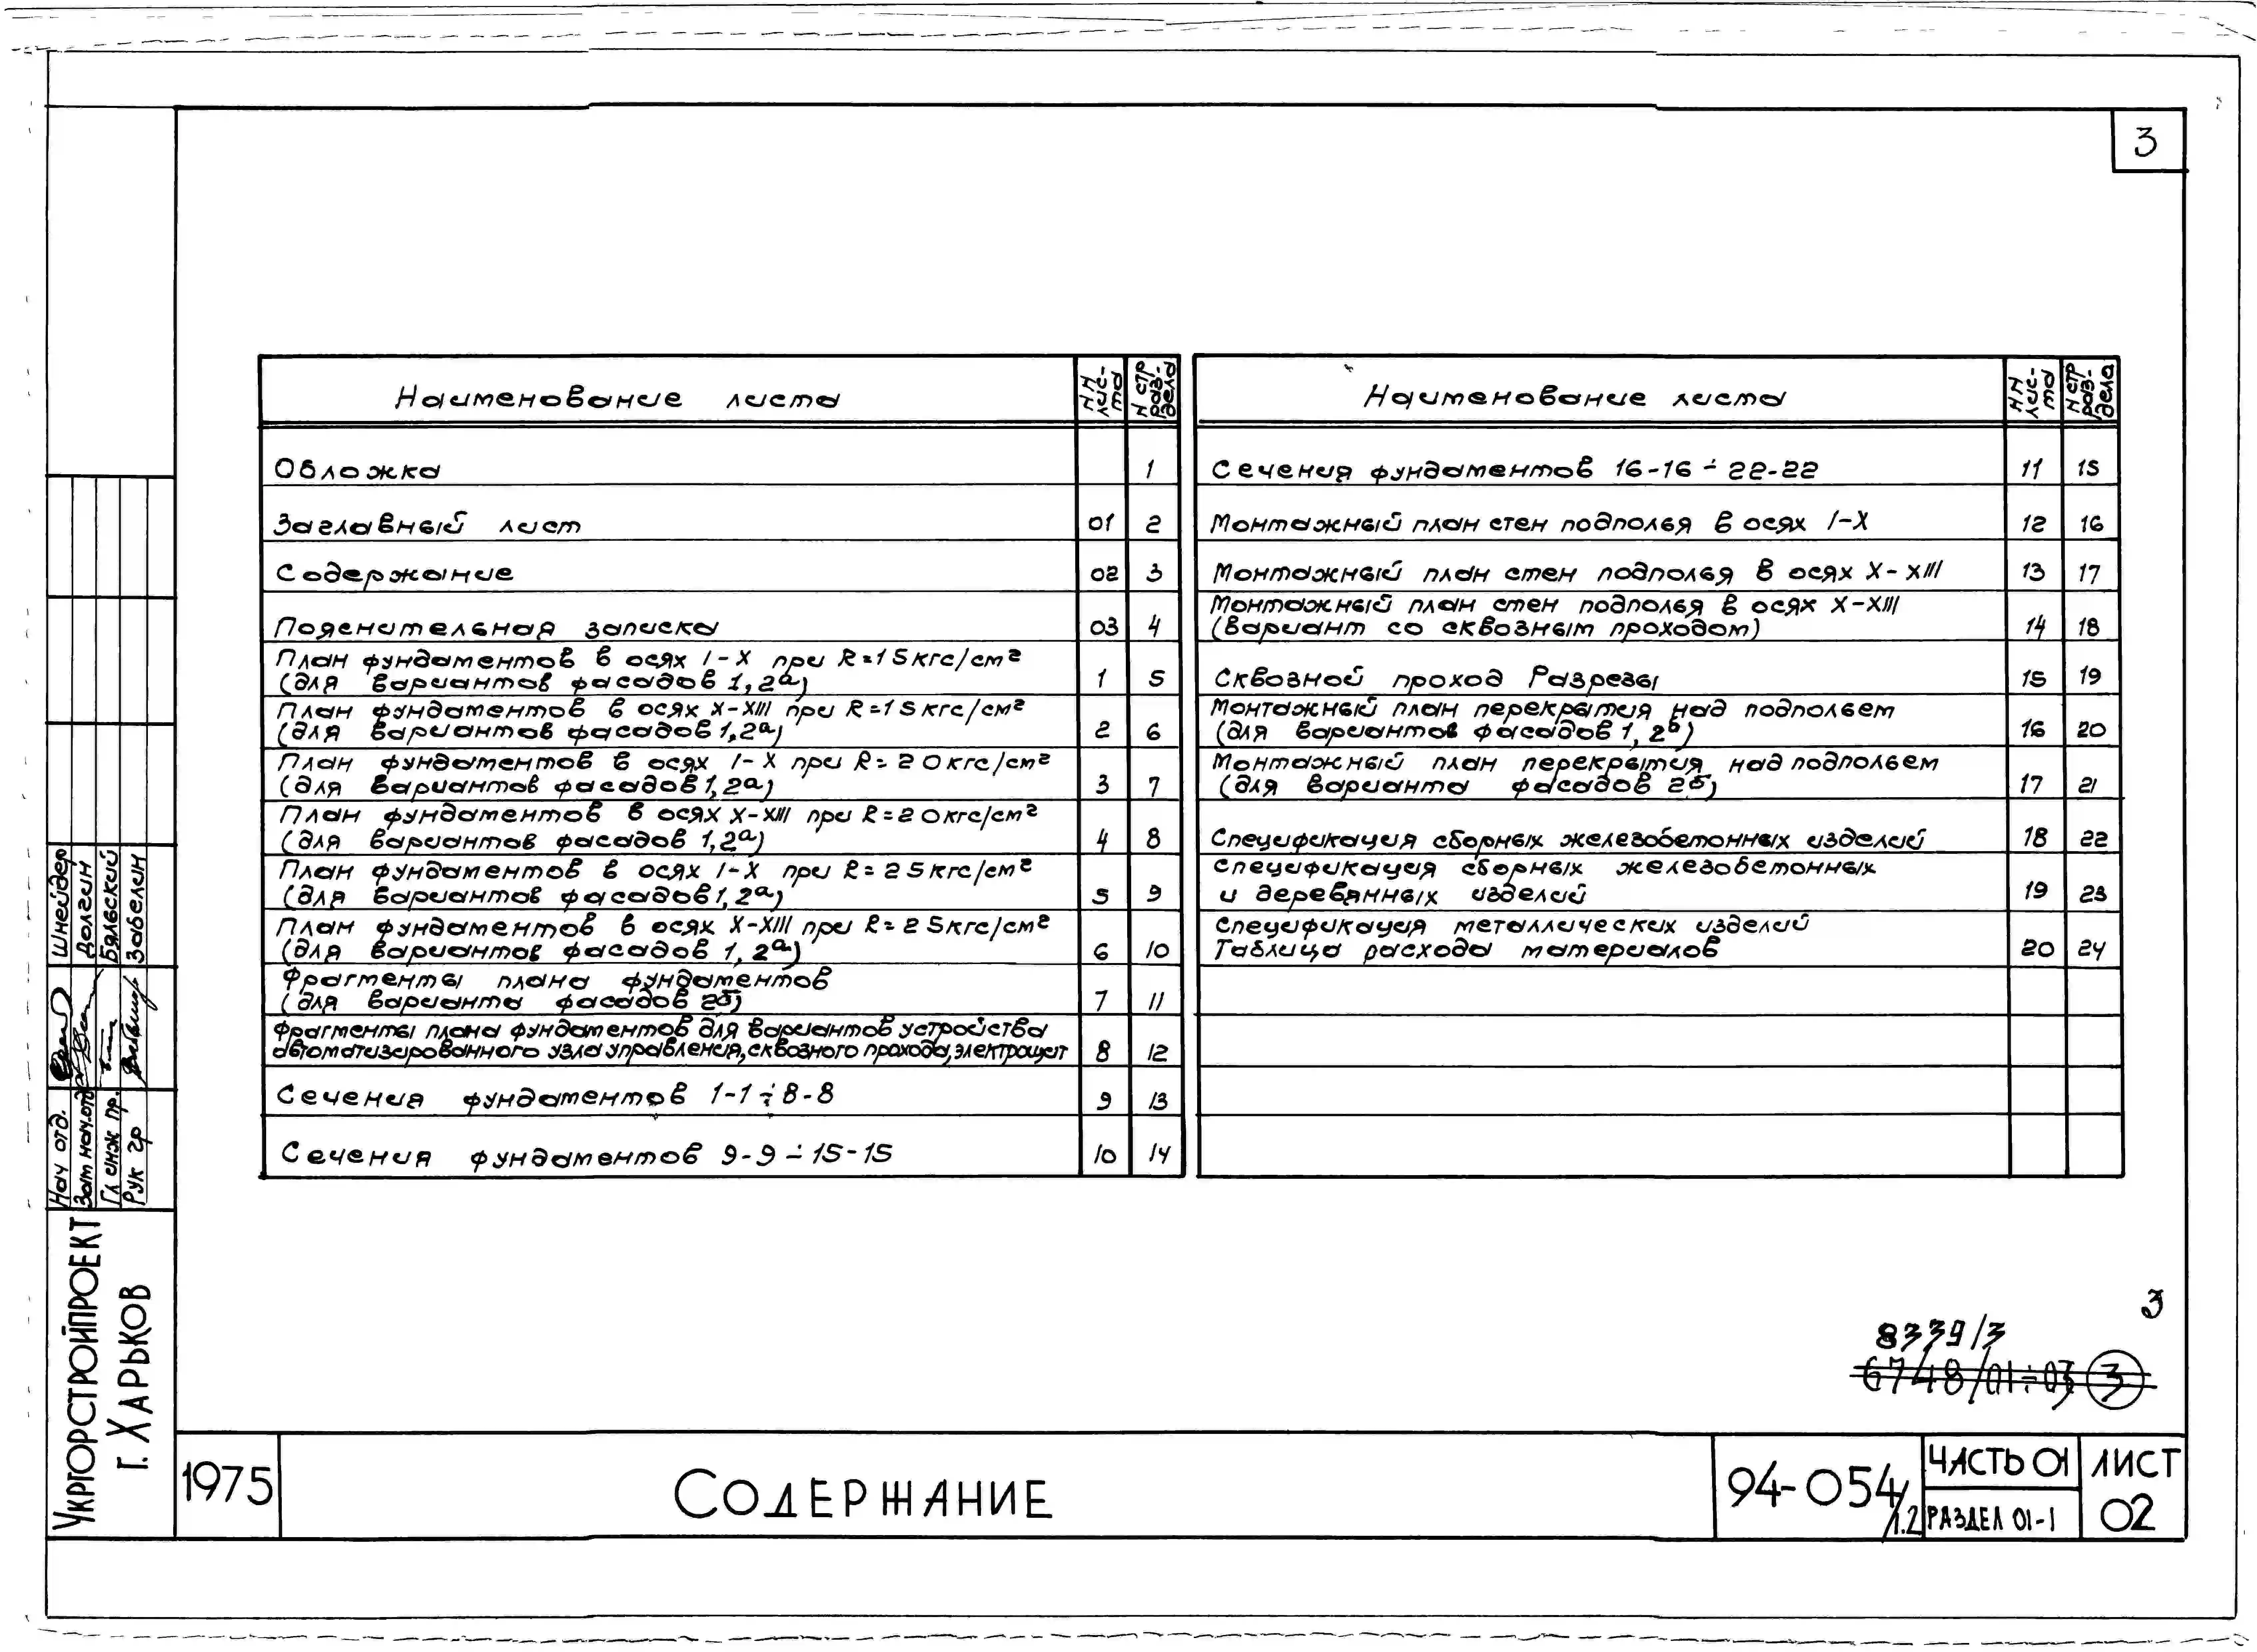 3
Наименование листа | NN листа | N стр раздела
Обложка | 1
Заглавный лист | 01 | 2
Содержание | 02 | 3
Пояснительная записка | 03 | 4
План фундаментов в осях I-X при R=15кгс/см²
(для вариантов фасадов 1,2а) | 1 | 5
План фундаментов в осях X-XIII при R=15кгс/см²
(для вариантов фасадов 1,2а) | 2 | 6
План фундаментов в осях I-X при R=20кгс/см²
(для вариантов фасадов 1,2а) | 3 | 7
План фундаментов в осях X-XIII при R=20кгс/см²
(для вариантов фасадов 1,2а) | 4 | 8
План фундаментов в осях I-X при R=25кгс/см²
(для вариантов фасадов 1,2а) | 5 | 9
План фундаментов в осях X-XIII при R=25кгс/см²
(для вариантов фасадов 1,2а) | 6 | 10
Фрагменты плана фундаментов
(для варианта фасадов 2б) | 7 | 11
Фрагменты плана фундаментов для вариантов устройства
автоматизированного узла управления, сквозного прохода, электрощит | 8 | 12
Сечения фундаментов 1-1÷8-8 | 9 | 13
Сечения фундаментов 9-9÷15-15 | 10 | 14
Наименование листа | NN листа | N стр раздела
Сечения фундаментов 16-16÷22-22 | 11 | 15
Монтажный план стен подполья в осях I-X | 12 | 16
Монтажный план стен подполья в осях X-XIII | 13 | 17
Монтажный план стен подполья в осях X-XIII
(вариант со сквозным проходом) | 14 | 18
Сквозной проход Разрезы | 15 | 19
Монтажный план перекрытия над подпольем
(для вариантов фасадов 1, 2б) | 16 | 20
Монтажный план перекрытия над подпольем
(для варианта фасадов 2б) | 17 | 21
Спецификация сборных железобетонных изделий | 18 | 22
Спецификация сборных железобетонных
и деревянных изделий | 19 | 23
Спецификация металлических изделий
Таблица расхода материалов | 20 | 24
Нач отд. Шнейдер
Зам нач.отд Долгин
Гл инж пр. Бяльский
Рук гр Забелин
Укргорстройпроект
г. Харьков
3
8339/3
6748/01÷03 3
1975
Содержание
94-054/1.2
Часть 01
Раздел 01-1
Лист
02